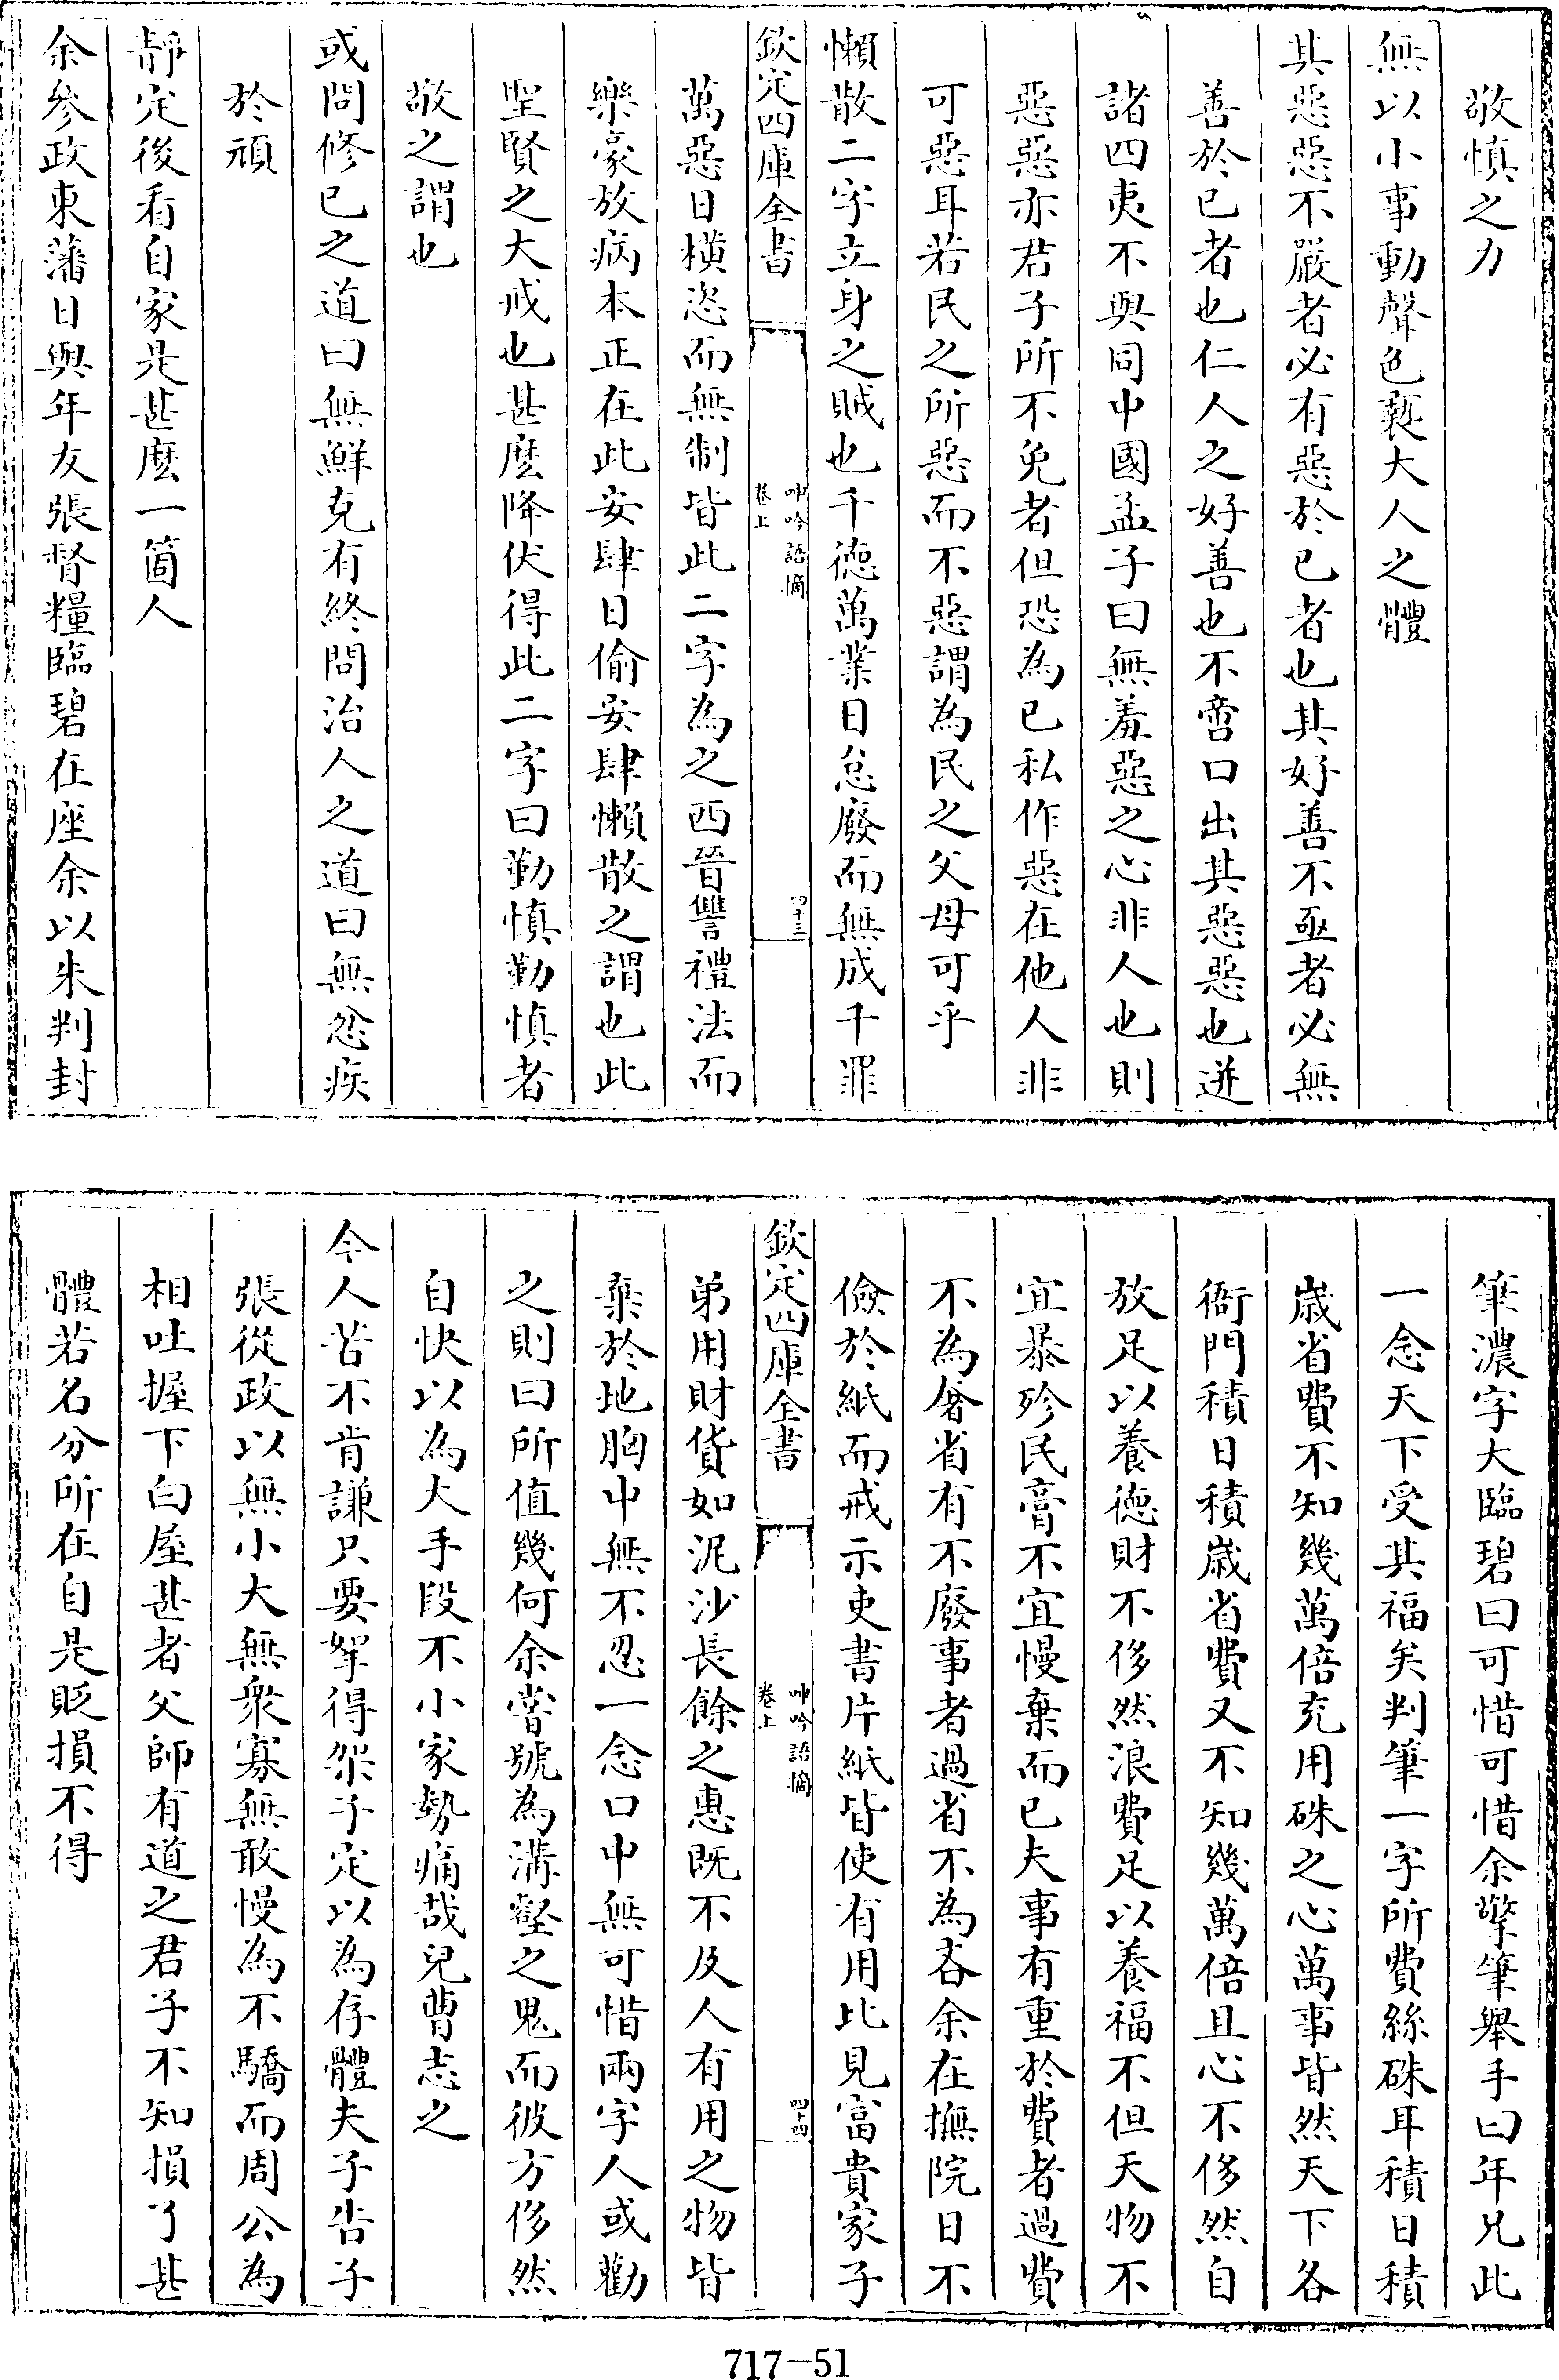 敬慎之力
無以小事動聲色䙝大人之體
其惡惡不嚴者必有惡於已者也其好善不亟者必無
善於已者也仁人之好善也不啻口出其惡惡也迸
諸四夷不與同中國孟子曰無羞惡之心非人也則
惡惡亦君子所不免者但恐為已私作惡在他人非
可惡耳若民之所惡而不惡謂為民之父母可乎
懶散二字立身之賊也千德萬業日怠廢而無成千罪
欽定四庫全書
呻吟語摘
卷上
四十三
萬惡日橫恣而無制皆此二字為之西晉讐禮法而
樂豪放病本正在此安肆日偷安肆懶散之謂也此
聖賢之大戒也甚麽降伏得此二字曰勤慎勤慎者
敬之謂也
或問修已之道曰無鮮克有終問治人之道曰無忿疾
於頑
靜定後看自家是甚麽一箇人
余參政東藩日與年友張督糧臨碧在座余以朱判封
筆濃字大臨碧曰可惜可惜余擎筆舉手曰年兄此
一念天下受其福矣判筆一字所費絲硃耳積日積
歲省費不知幾萬倍充用硃之心萬事皆然天下各
衙門積日積歲省費又不知幾萬倍且心不侈然自
放足以養德財不侈然浪費足以養福不但天物不
宜暴殄民膏不宜慢棄而已夫事有重於費者過費
不為奢省有不廢事者過省不為吝余在撫院日不
儉於紙而戒示吏書片紙皆使有用比見富貴家子
欽定四庫全書
呻吟語摘
卷上
四十四
弟用財貨如泥沙長餘之惠既不及人有用之物皆
棄於地胸中無不忍一念口中無可惜兩字人或勸
之則曰所值幾何余嘗號為溝壑之鬼而彼方侈然
自快以為大手段不小家勢痛哉兒曹志之
今人苦不肯謙只要拏得架子定以為存體夫子告子
張從政以無小大無衆寡無敢慢為不驕而周公為
相吐握下白屋甚者父師有道之君子不知損了甚
體若名分所在自是貶損不得
717-51